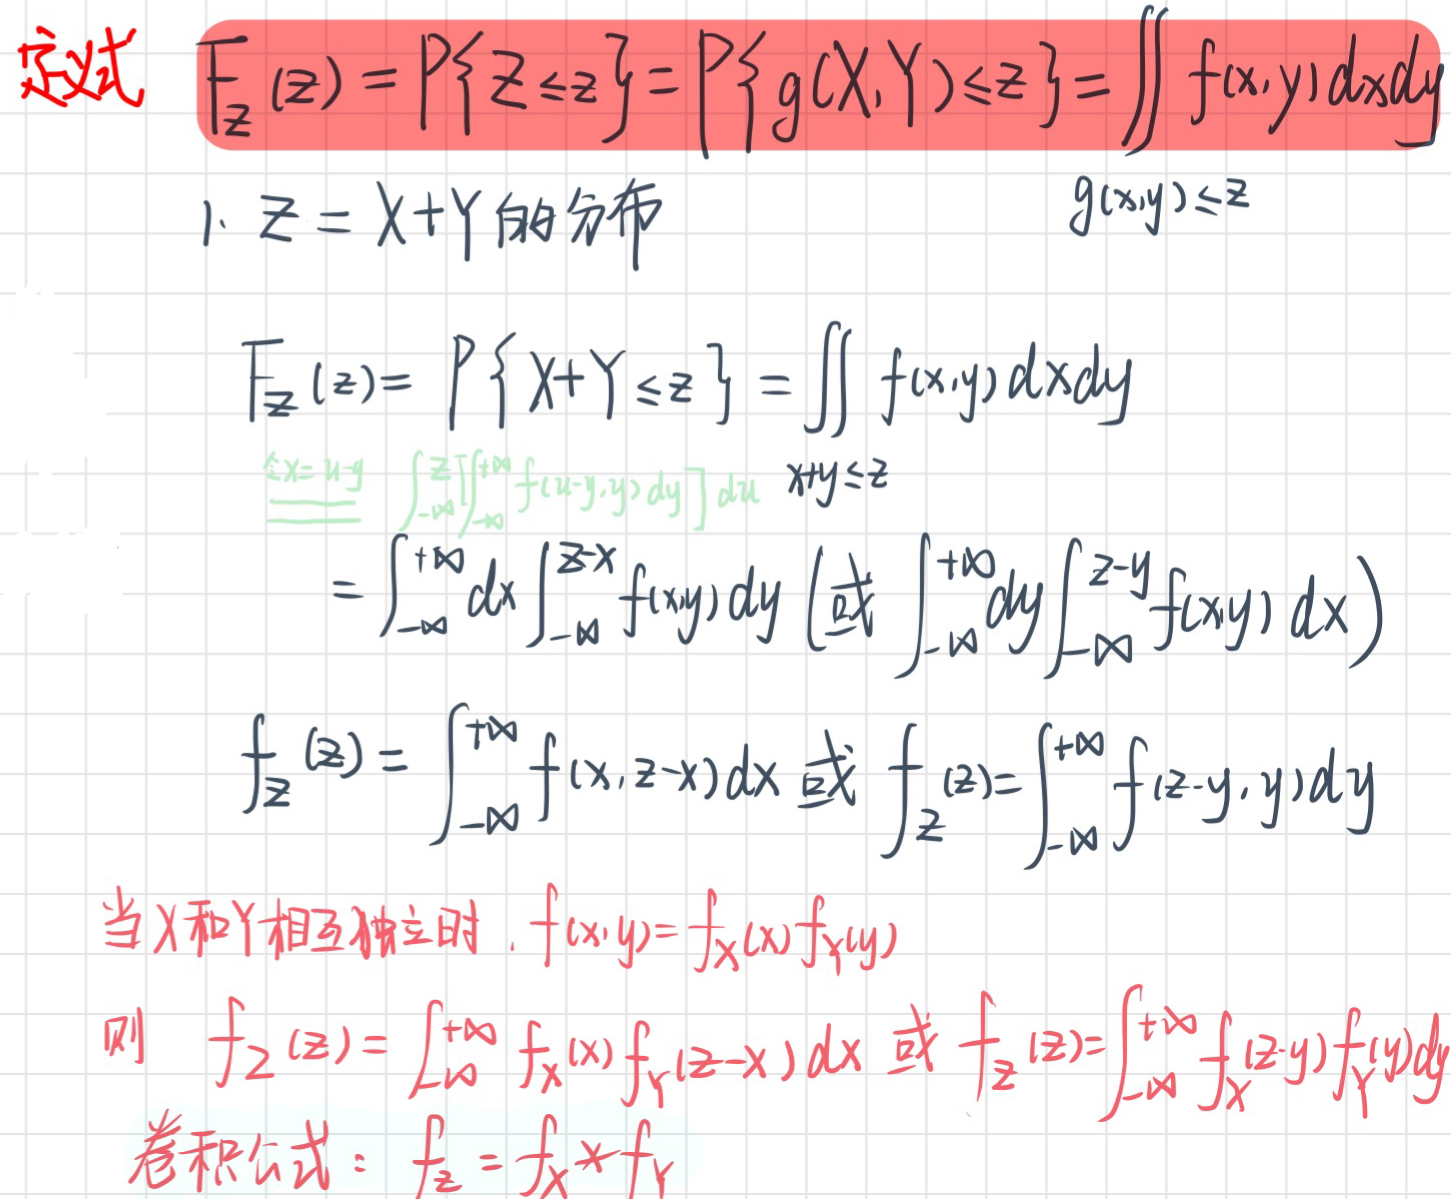 定义式 F_Z(z) = P{Z≤z} = P{g(X,Y)≤z} = ∬ f(x,y)dxdy
g(x,y)≤z
1. Z = X+Y的分布
F_Z(z) = P{X+Y≤z} = ∬ f(x,y)dxdy
x+y≤z
令x=u-y ∫_{-∞}^{z}[∫_{-∞}^{+∞} f(u-y,y)dy]du
= ∫_{-∞}^{+∞}dx∫_{-∞}^{z-x} f(x,y)dy (或 ∫_{-∞}^{+∞}dy∫_{-∞}^{z-y} f(x,y)dx)
f_Z(z) = ∫_{-∞}^{+∞} f(x,z-x)dx 或 f_Z(z) = ∫_{-∞}^{+∞} f(z-y,y)dy
当X和Y相互独立时,f(x,y) = f_X(x)f_Y(y)
则 f_Z(z) = ∫_{-∞}^{+∞} f_X(x)f_Y(z-x)dx 或 f_Z(z) = ∫_{-∞}^{+∞} f_X(z-y)f_Y(y)dy
卷积公式: f_Z = f_X * f_Y